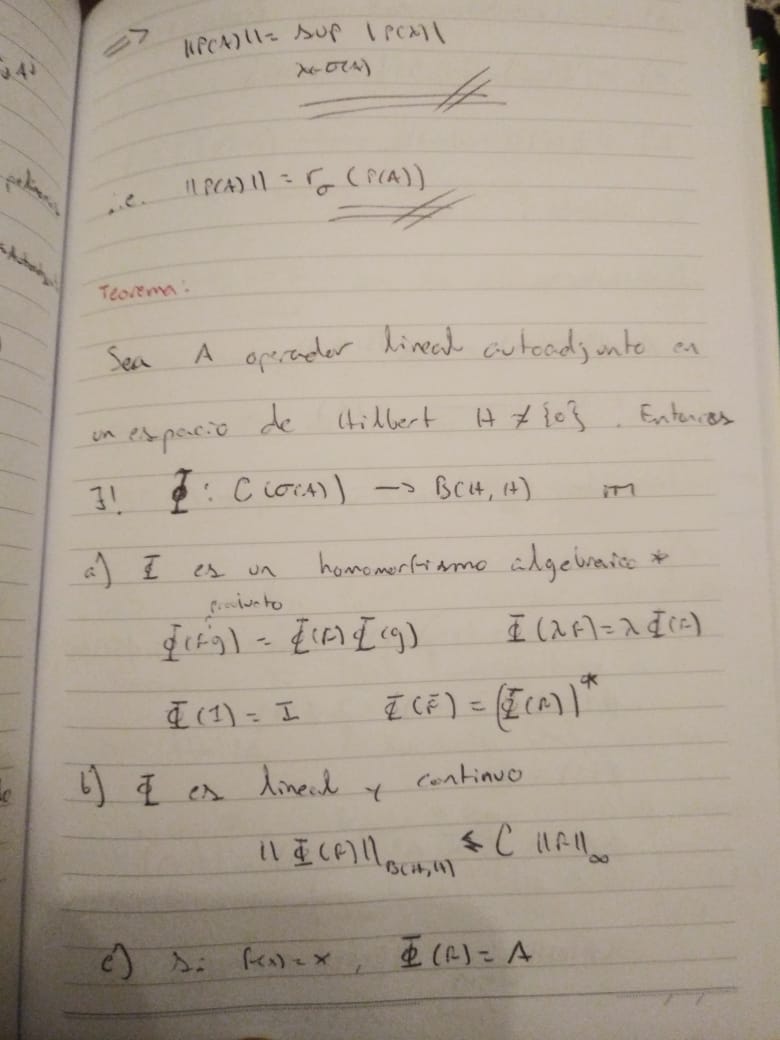 => ||P(A)|| = sup |P(λ)|
λ∈σ(A)
i.e. ||P(A)|| = r_σ (P(A))
Teorema:
Sea A operador lineal autoadjunto en
un espacio de Hilbert H ≠ {0}. Entonces
∃! Φ : C(σ(A)) → B(H, H)
a) Φ es un homomorfismo algebraico *
producto
Φ(fg) = Φ(f) Φ(g) Φ(λf) = λ Φ(f)
Φ(1) = I Φ(f̄) = (Φ(f))*
b) Φ es lineal y continuo
|| Φ(f)||_B(H,H) ≤ C ||f||_∞
c) si f(x) = x, Φ(f) = A